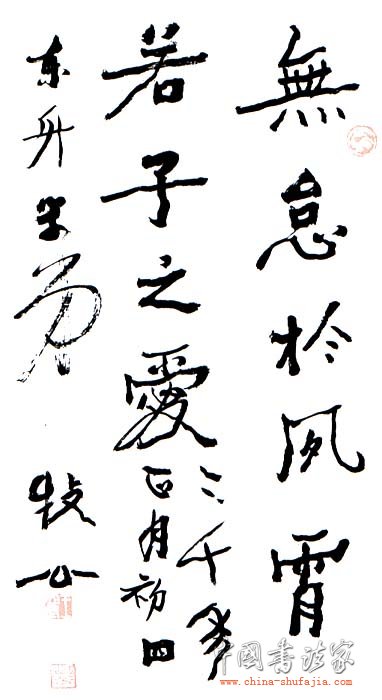 無怠於夙霄
若子之愛
二千年
正月初四
东升
牧公
中國書法家
www.china-shufajia.com